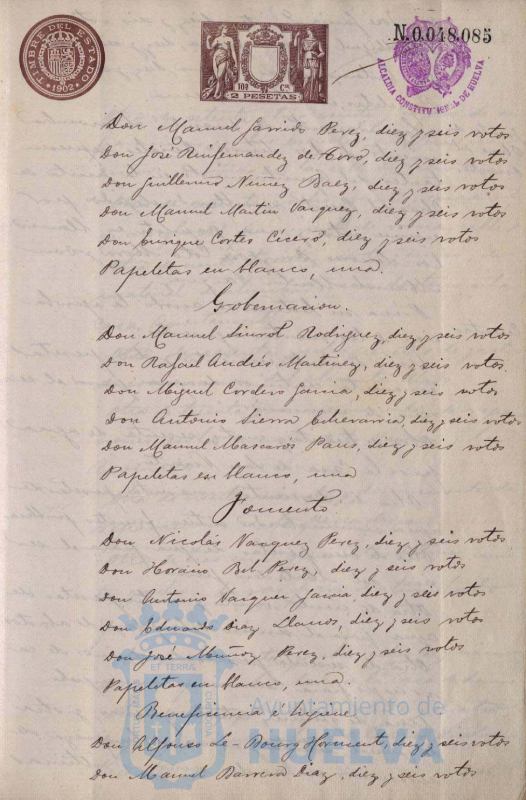 TIMBRE DEL ESTADO
1902
10ª Cª
2 PESETAS
N.0.048.085
ALCALDIA CONSTITUCIONAL DE HUELVA
Don Manuel Garrido Perez, diez y seis votos
Don José Ruifernandez de Toro, diez y seis votos
Don Guillermo Nuñez Baez, diez y seis votos
Don Manuel Martin Vazquez, diez y seis votos
Don Enrique Cortes Cícero, diez y seis votos
Papeletas en blanco, una.
Gobernacion.
Don Manuel Siurot Rodriguez, diez y seis votos
Don Rafael Andrés Martinez, diez y seis votos.
Don Miguel Cordero Garcia, diez y seis votos
Don Antonio Sierra Echevarria, diez y seis votos
Don Manuel Mascarós Paus, diez y seis votos
Papeletas en blanco, una
Fomento
Don Nicolás Vazquez Perez, diez y seis votos
Don Horacio Bel Perez, diez y seis votos
Don Antonio Vazquez Garcia, diez y seis votos
Don Eduardo Diaz Llanos, diez y seis votos
Don José Muñoz Perez, diez y seis votos
Papeletas en blanco, una.
Beneficencia e higiene
Don Alfonso Le-Bourg, diez y seis votos
Don Manuel Barrera Diaz, diez y seis votos
Ayuntamiento de
HUELVA